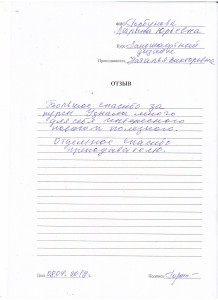 ФИО Горбунова
Марина Юрьевна
Курс Ландшафтный
дизайн
Преподаватель Наталья Викторовна
ОТЗЫВ
Большое спасибо за
курсы. Узнала много
для себя интересного
полезного.
Отдельное спасибо
преподавателю.
Дата 08.04.2018г. Подпись